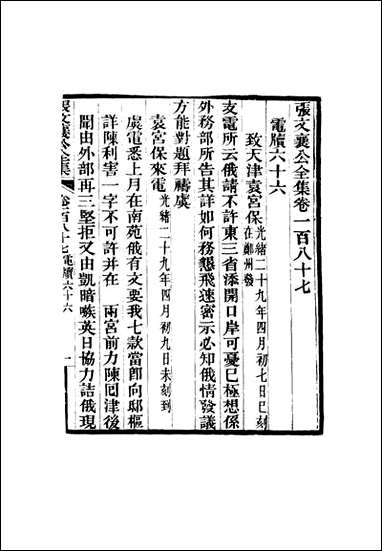 張文襄公全集卷一百八十七
電牘六十六
致天津袁宮保光緒二十九年四月初七日巳刻在鄭州發
支電所云俄請不許東三省添開口岸可憂已極想係
外務部所告其詳如何務懇飛速密示必知俄情發議
方能對題拜禱虞
袁宮保來電光緒二十九年四月初九日未刻到
虞電悉上月在南苑俄有文要我七款當卽向邸樞
詳陳利害一字不可許并在 兩宮前力陳囘津後
聞由外部再三堅拒又由凱暗嗾英日協力詰俄現
張文襄公全集 卷一百八十七電牘六十六 一